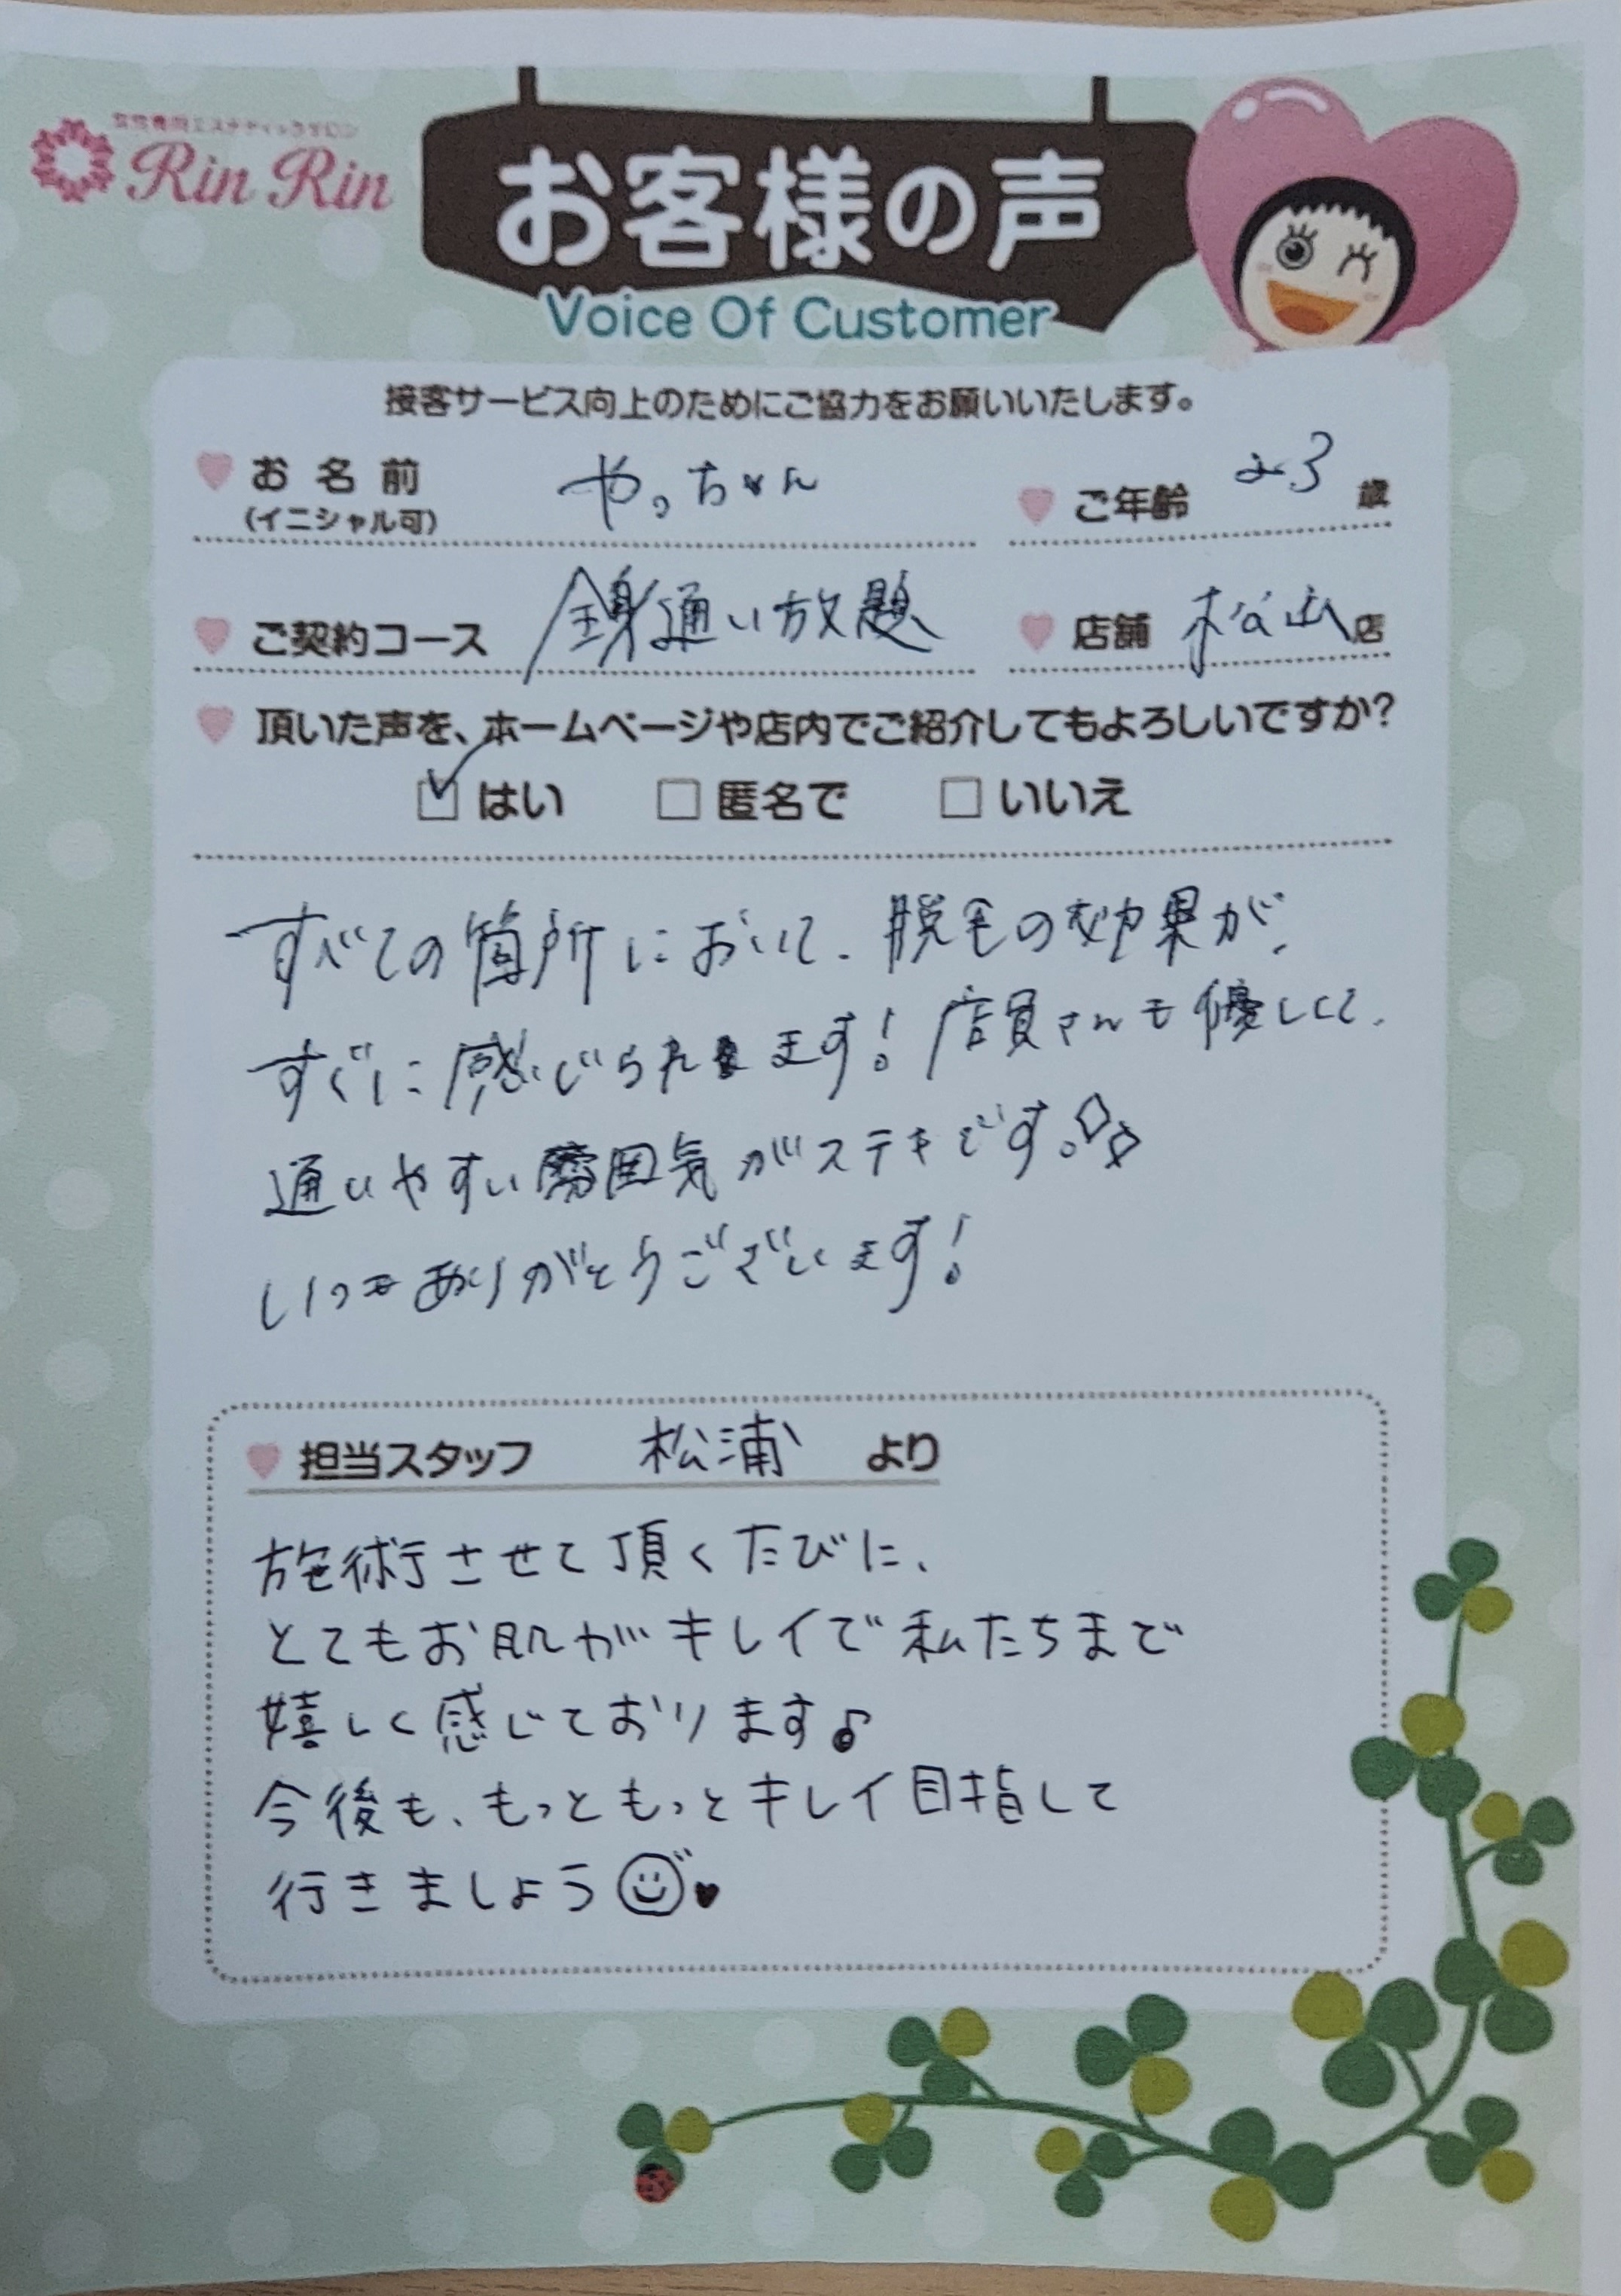 脱毛専門エステティックサロン
Rin Rin
お客様の声
Voice Of Customer
接客サービス向上のためにご協力をお願いいたします。
お名前 やっちゃん ご年齢 23 歳
(イニシャル可)
ご契約コース 全身通い放題 店舗 松山店
頂いた声を、ホームページや店内でご紹介してもよろしいですか?
はい 匿名で いいえ
すべての箇所において、脱毛の効果が、
すぐに感じられます! 店員さんも優しくて、
通いやすい雰囲気がステキです。
いつもありがとうございます!
担当スタッフ 松浦 より
施術させて頂くたびに、
とてもお肌がキレイで私たちまで
嬉しく感じております♪
今後も、もっともっとキレイ目指して
行きましょう